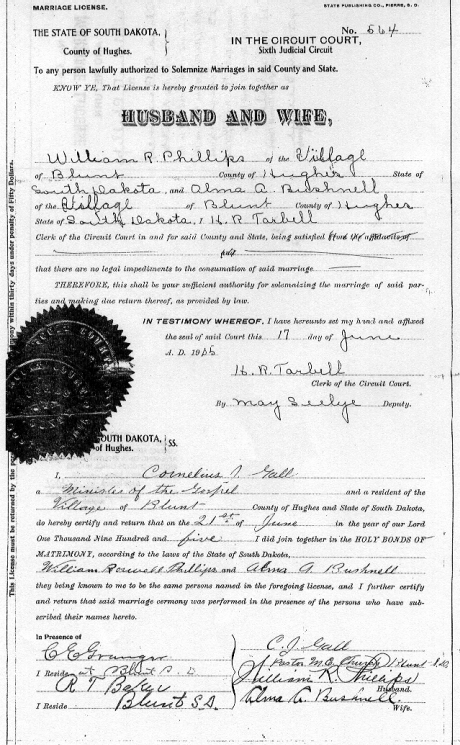 MARRIAGE LICENSE.
STATE PUBLISHING CO., PIERRE, S. D.
THE STATE OF SOUTH DAKOTA,
County of Hughes.
No. 564
IN THE CIRCUIT COURT,
Sixth Judicial Circuit
To any person lawfully authorized to Solemnize Marriages in said County and State.
KNOW YE, That License is hereby granted to join together as
HUSBAND AND WIFE,
William R. Phillips of the Village
of Blunt County of Hughes State of
South Dakota, and Alma A. Bushnell
of the Village of Blunt County of Hughes
State of South Dakota, I H. R. Tarbell
Clerk of the Circuit Court in and for said County and State, being satisfied from the affidavits of
and
that there are no legal impediments to the consumation of said marriage
THEREFORE, this shall be your sufficient authority for solemnizing the marriage of said par-
ties and making due return thereof, as provided by law.
IN TESTIMONY WHEREOF, I have hereunto set my hand and affixed
the seal of said Court this 17 day of June
A. D. 190
H. R. Tarbell
Clerk of the Circuit Court.
By May Seelye Deputy.
SOUTH DAKOTA,
of Hughes.
SS.
I, Cornelius J. Gall
a Minister of the Gospel and a resident of the
Village of Blunt County of Hughes and State of South Dakota,
do hereby certify and return that on the 21st of June in the year of our Lord
One Thousand Nine Hundred and five I did join together in the HOLY BONDS OF
MATRIMONY, according to the laws of the State of South Dakota,
William Phillips and Alma A Bushnell
they being known to me to be the same persons named in the foregoing license, and I further certify
and return that said marriage cermony was performed in the presence of the persons who have sub-
scribed their names hereto.
In Presence of
C E Granger
I Reside at Blunt S. D.
R T
I Reside Blunt S.D.
C. J. Gall
Pastor M.E. Church Blunt S.D.
William R. Phillips
Husband.
Alma A. Bushnell
Wife.
This License must be returned by the
mony within thirty days under penalty of Fifty Dollars.